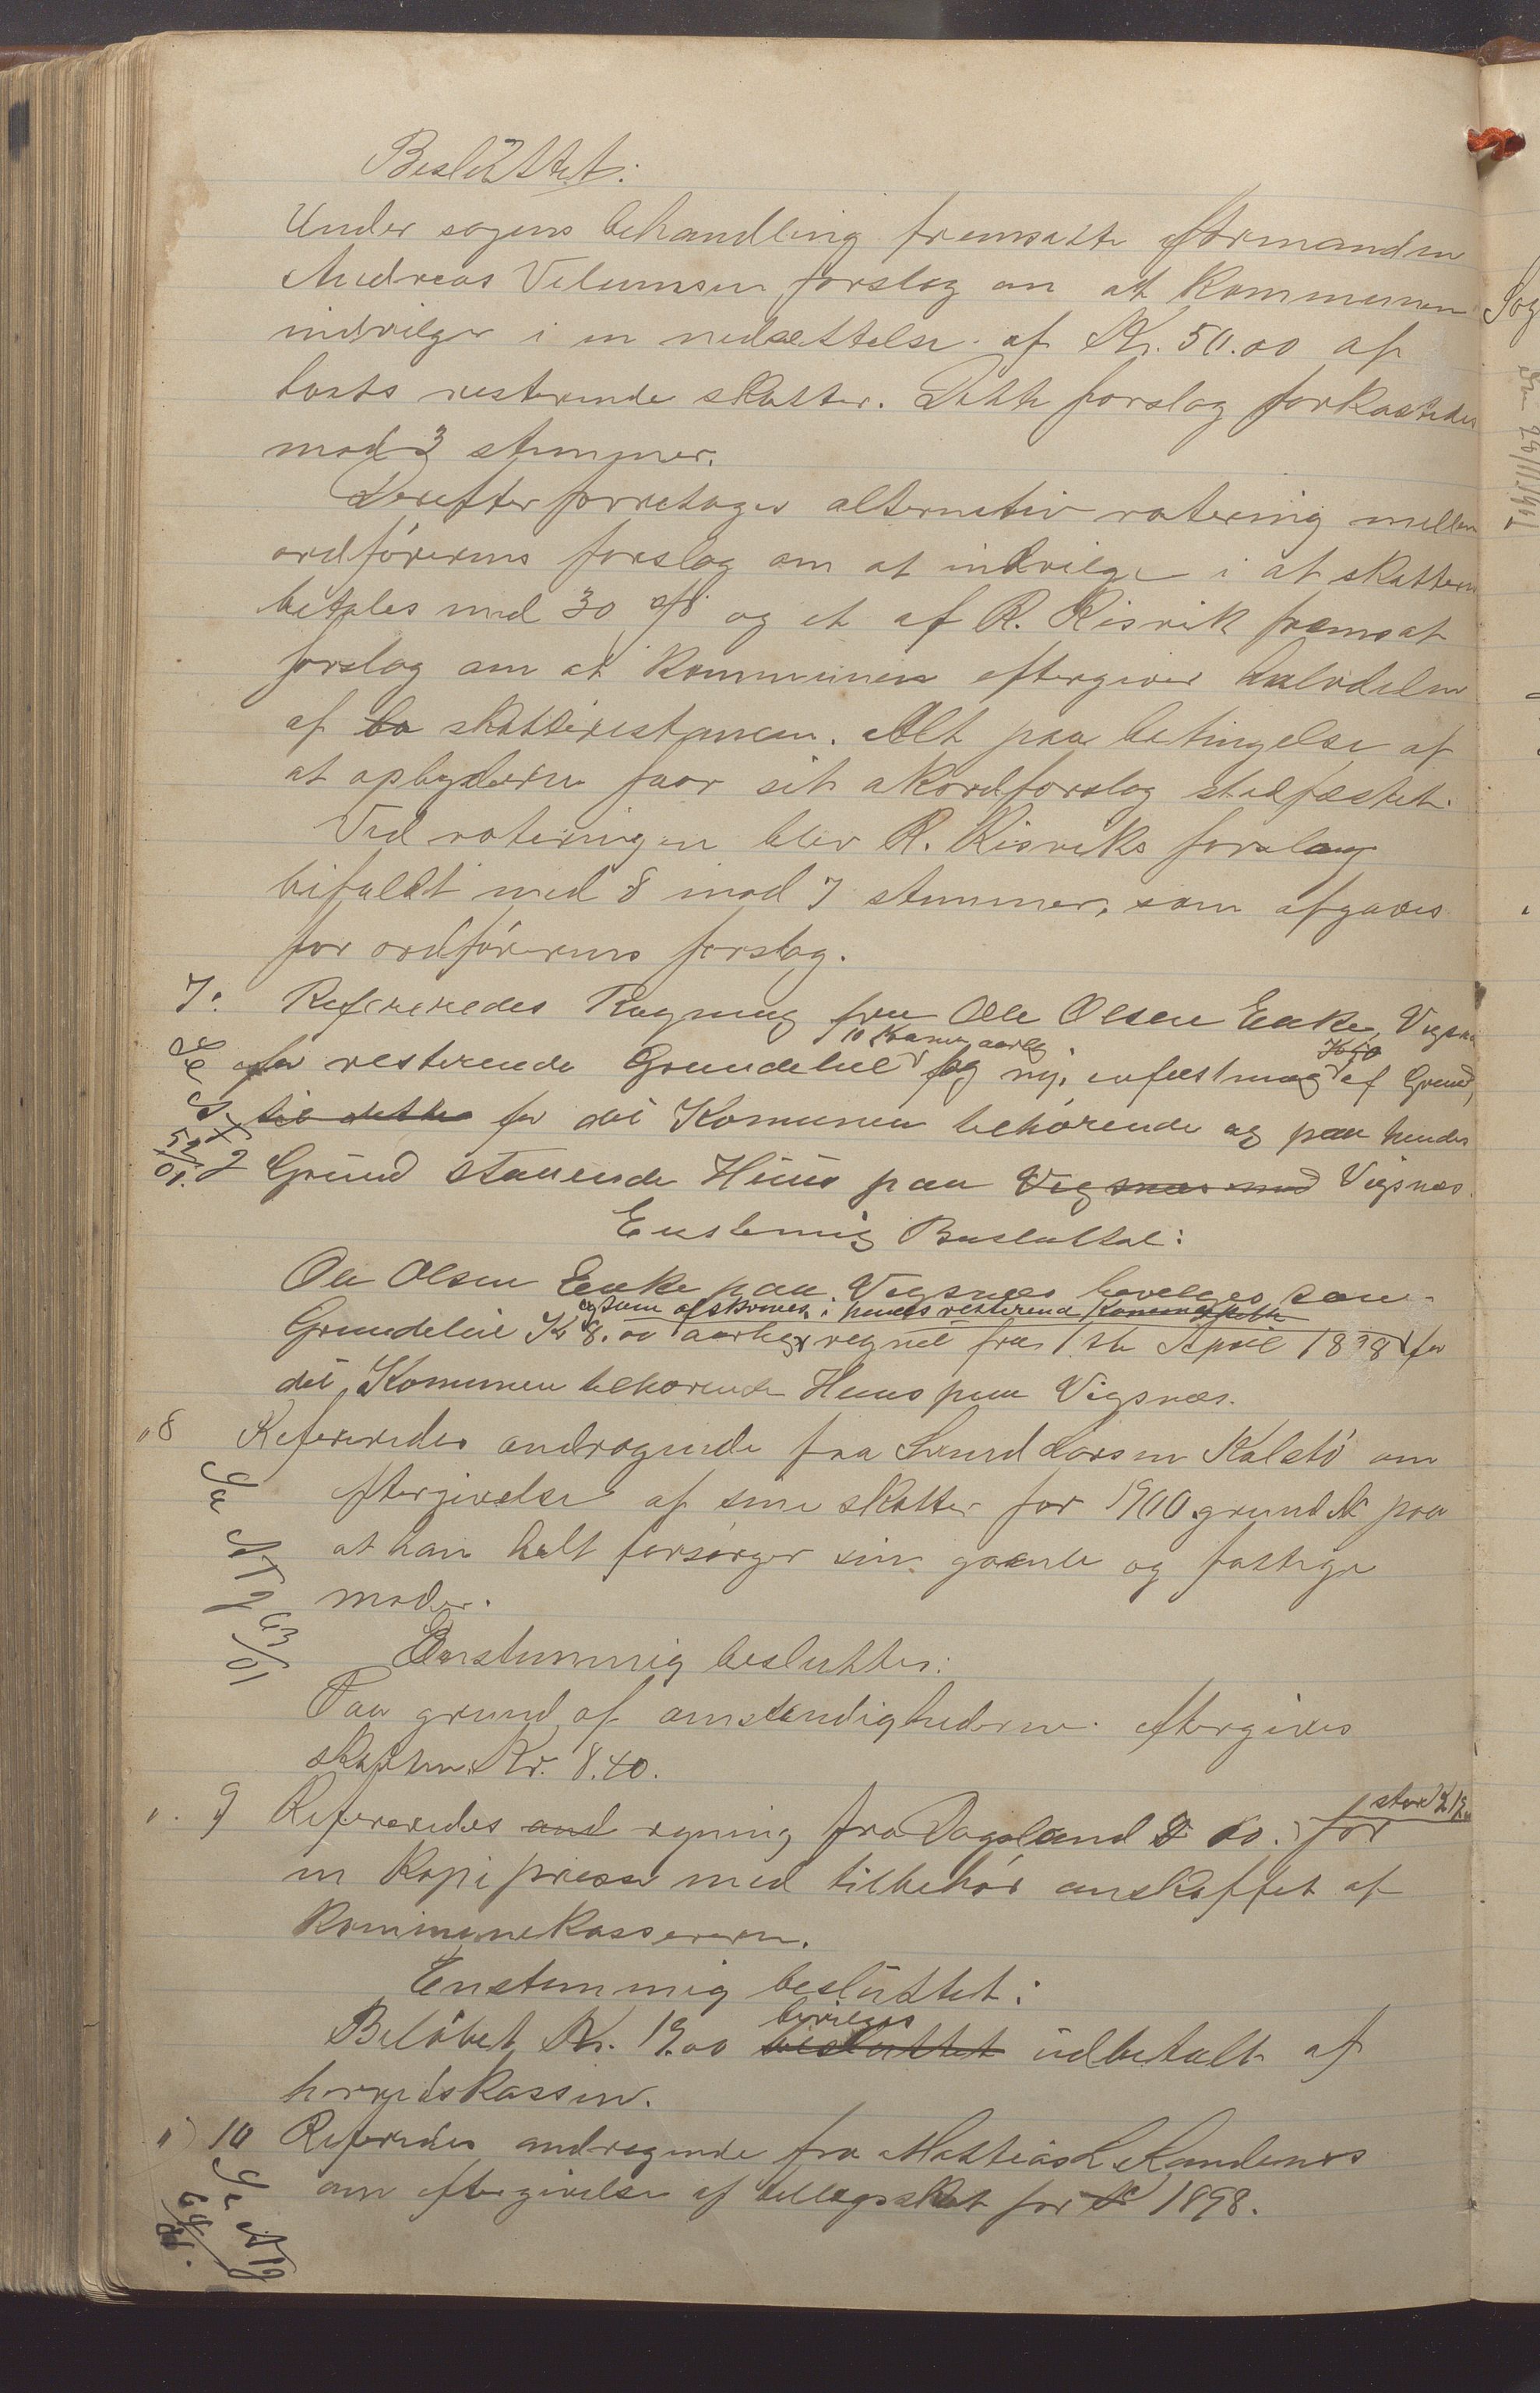 Beslüttet:
Under sagens behandling fremsatte formanden
Andreas Velumsen forslag om at kommunen
indvilger i en nedsættelse af Kr. 50.00 af
boets resterende skatter. Dette forslag forkastedes
mod 3 stemmer.
Derefter foretages alternativ votering mellem
ordførerens forslag om at indvilge i at skatten
betales med 30 % og et af R. Risvik fremsat
forslag om at kommunen eftergiver halvdelen
af bo skatterestancen. Alt paa betingelse af
at opbyderen faar sit akordforslag stadfæstet.
Ved voteringen blev R. Risviks forslag
bifaldt med 8 mod 7 stemmer, som afgaves
for ordførerens forslag.
7. Refereredes Regning fra Ole Olsen Enke, Vigsnæs
10 Kroner aarlig
for resterende Grundeleie og ny af Grund,
til dette for det Komunen behørende og paa hendes
Grund staaende Hüüs paa Vigsnæs med Vigsnæs.
Enstemig Besluttet:
Ole Olsen Enke paa Vigsnæs bevilges som
og som afskrives i hendes resterende
Grundeleie Kr 8.00 aarlig regnet fra 1ste April 1898 for
det Komunen behørende Huus paa Vigsnæs.
" 8 Refereredes andragende fra Lars Larsen Kalstø om
eftergivelse af sine skatter for 1900 grundet paa
at han helt forsørger sin gamle og fattige
moder.
Enstemmig besluttes:
Paa grund af omstændighederne eftergives
skatten Kr. 8.40.
" 9 Refereredes and regning fra Dagsland & Co. for
stor Kr 19.00
en Kopipresse med tilbehør anskaffet af
Kommunekassereren.
Enstemmig beslüttet:
bevilges
Beløbet Kr. 19.00 besluttet udbetalt af
herredskassen.
" 10 Referedes andragende fra Mattias L. Sandenes
om eftergivelse af tillægsskat for 1898.
63/01